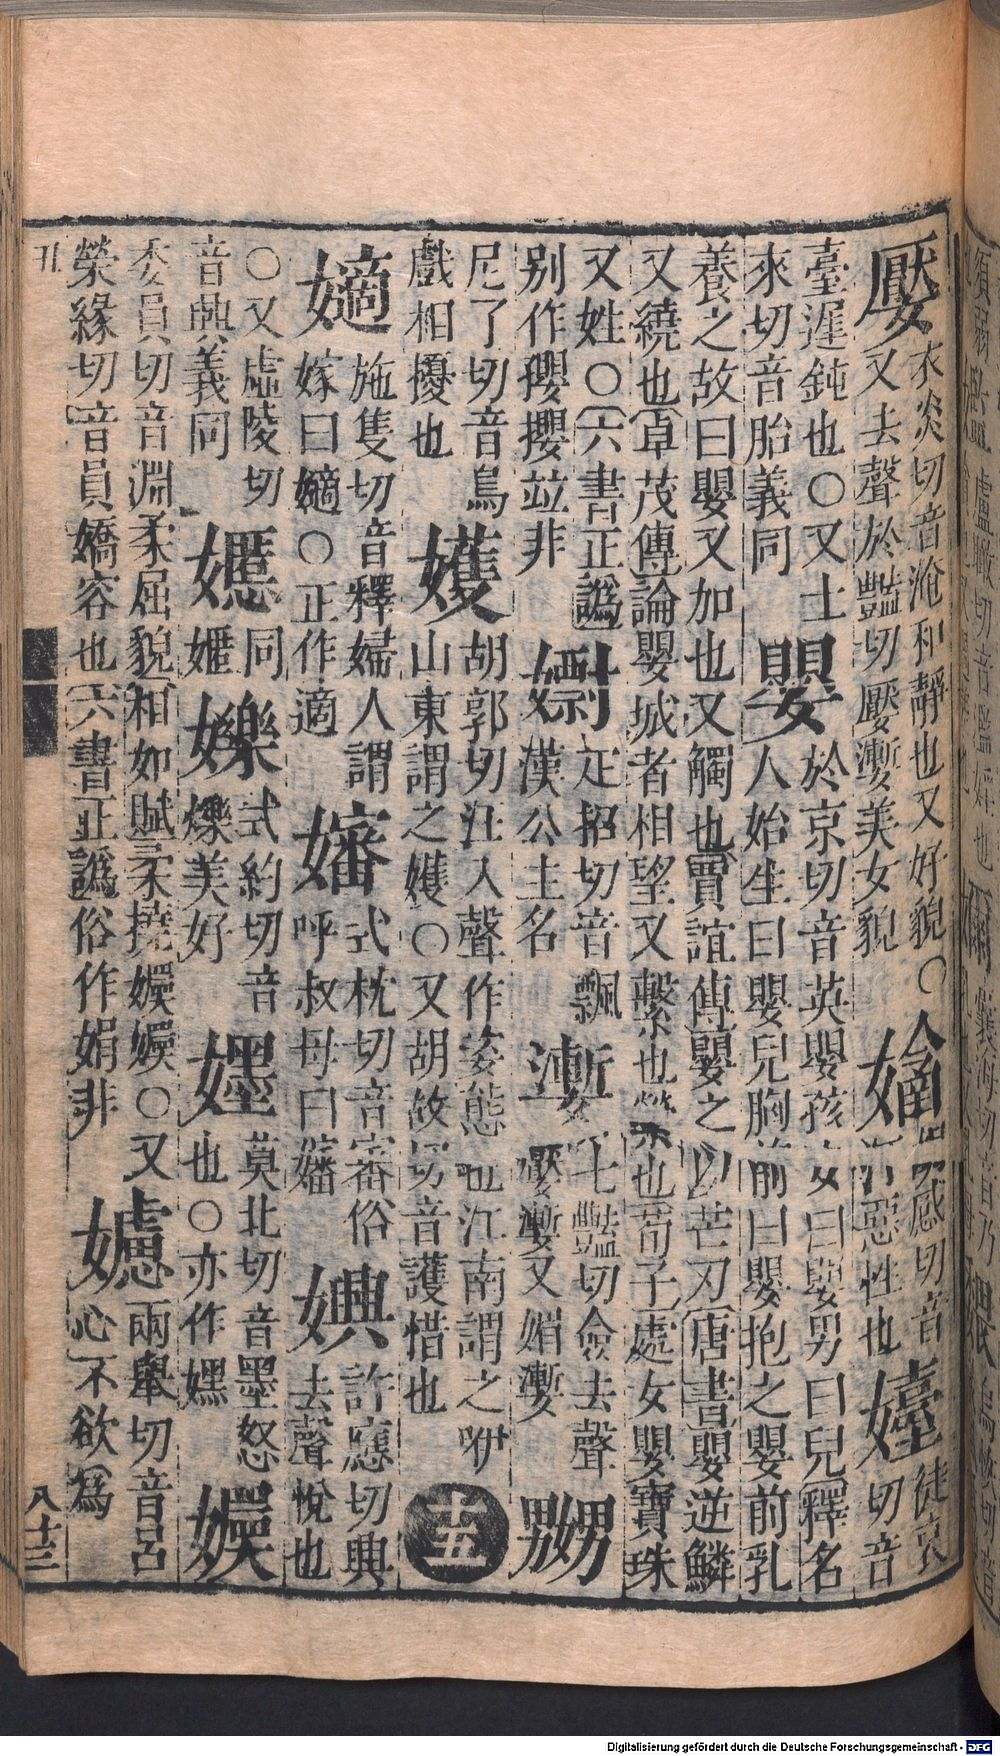 嬮 衣炎切音淹和靜也又好貌○
又去聲於豔切嬮㜞美女貌 嬒 感切音
惡性也 嬯 徒哀
切音
臺遲鈍也○又土
來切音胎義同 嬰 於京切音英嬰孩女曰嬰男曰兒釋名
人始生曰嬰兒胸前曰嬰抱之嬰前乳
養之故曰嬰又加也又觸也賈誼傳嬰之以芒刃唐書嬰逆鱗
又繞也卓茂傳論嬰城者相望又繫也 也荀子處女嬰寶珠
又姓○六書正譌
別作孾攖竝非 㜠 定招切音飄
漢公主名 㜞 七豔切僉去聲
嬮㜞又媢㜞 嬲
尼了切音鳥
戲相擾也 嬳 胡郭切汪入聲作姿態也江南謂之
山東謂之嬳○又胡故切音護惜也 十五
嬂 施隻切音釋婦人謂
嫁曰嬂○正作適 嬸 式枕切音審俗
呼叔母曰嬸 嬹 許應切興
去聲悅也
○又虛陵切
音興義同 嬺 同
嫟 嬫 式約切音
爍美好 嬺 莫北切音墨怒
也○亦作嫼 嬽
委員切音淵柔屈貌相如賦柔撓嬽嬽○又
縈緣切音員嬌容也六書正譌俗作娟非 㜥 兩舉切音呂
心不欲爲
八十三
Digitalisierung gefördert durch die Deutsche Forschungsgemeinschaft - DFG